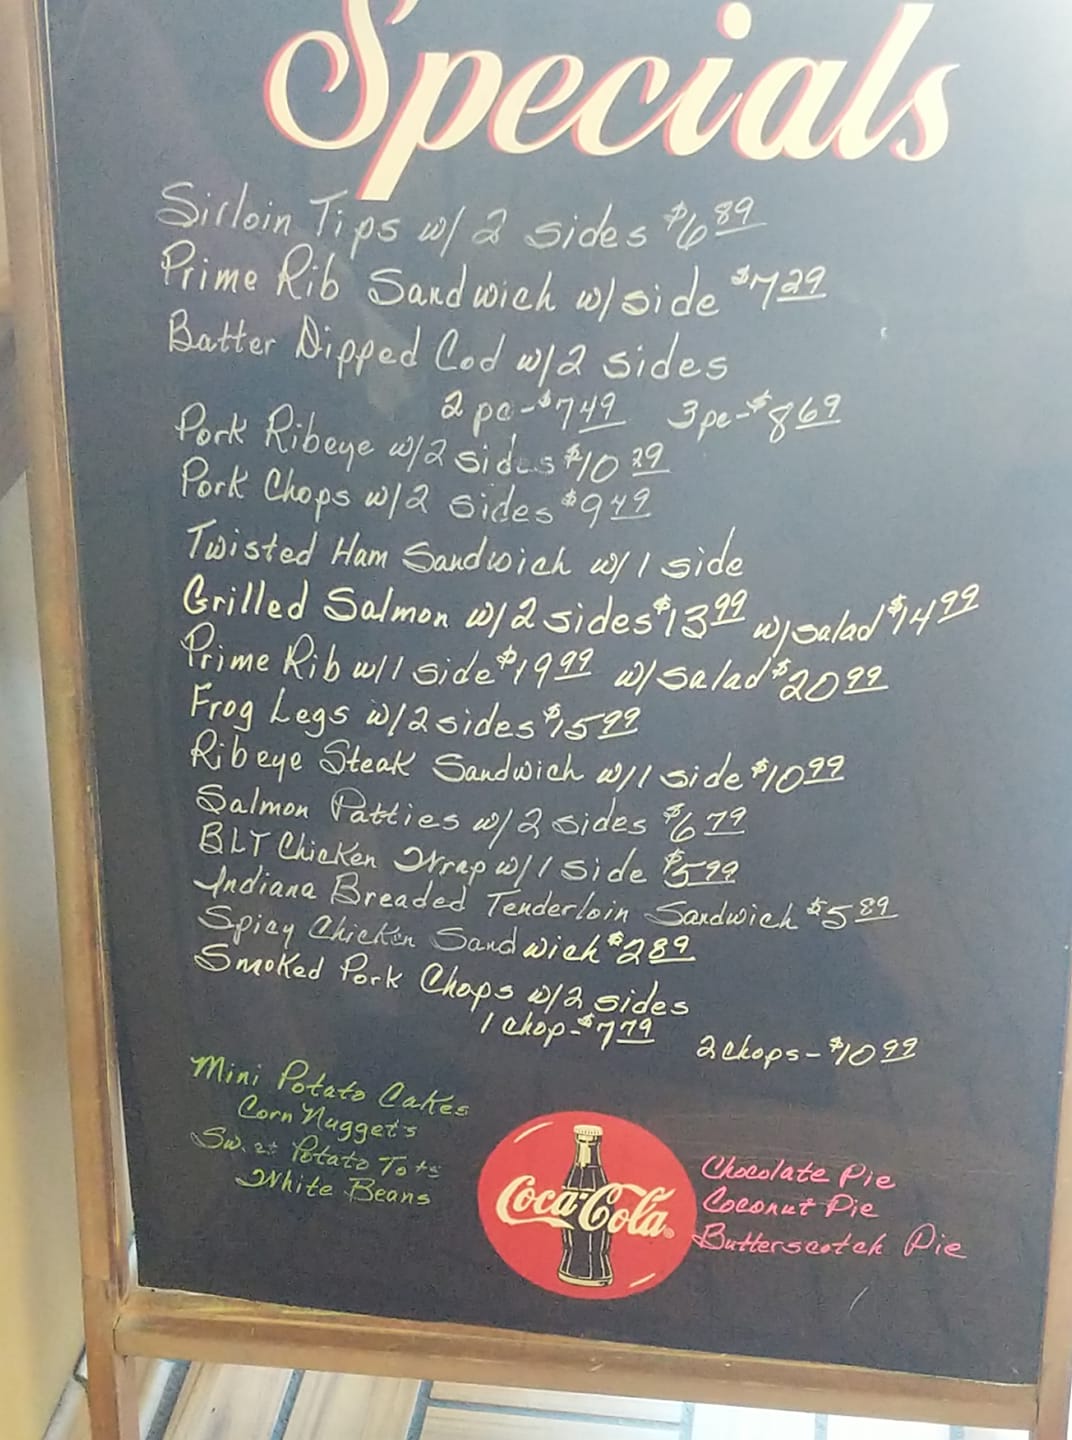 Specials
Sirloin Tips w/ 2 sides $6 89
Prime Rib Sandwich w/side $7 29
Batter Dipped Cod w/2 sides
2 pc-$7 49 3 pc-$8 69
Pork Ribeye w/2 sides $10 29
Pork Chops w/2 sides $9 49
Twisted Ham Sandwich w/ 1 side
Grilled Salmon w/2 sides $13 99 w/salad $14 99
Prime Rib w/1 side $19 99 w/salad $20 99
Frog Legs w/2 sides $15 99
Ribeye Steak Sandwich w/1 side $10 99
Salmon Patties w/2 sides $6 79
BLT Chicken Wrap w/1 side $5 99
Indiana Breaded Tenderloin Sandwich $5 89
Spicy Chicken Sandwich $2 89
Smoked Pork Chops w/2 sides
1 chop-$7 79 2 chops-$10 99
Mini Potato Cakes
Corn Nuggets
Sweet Potato Tots
White Beans
Coca-Cola
Chocolate Pie
Coconut Pie
Butterscotch Pie